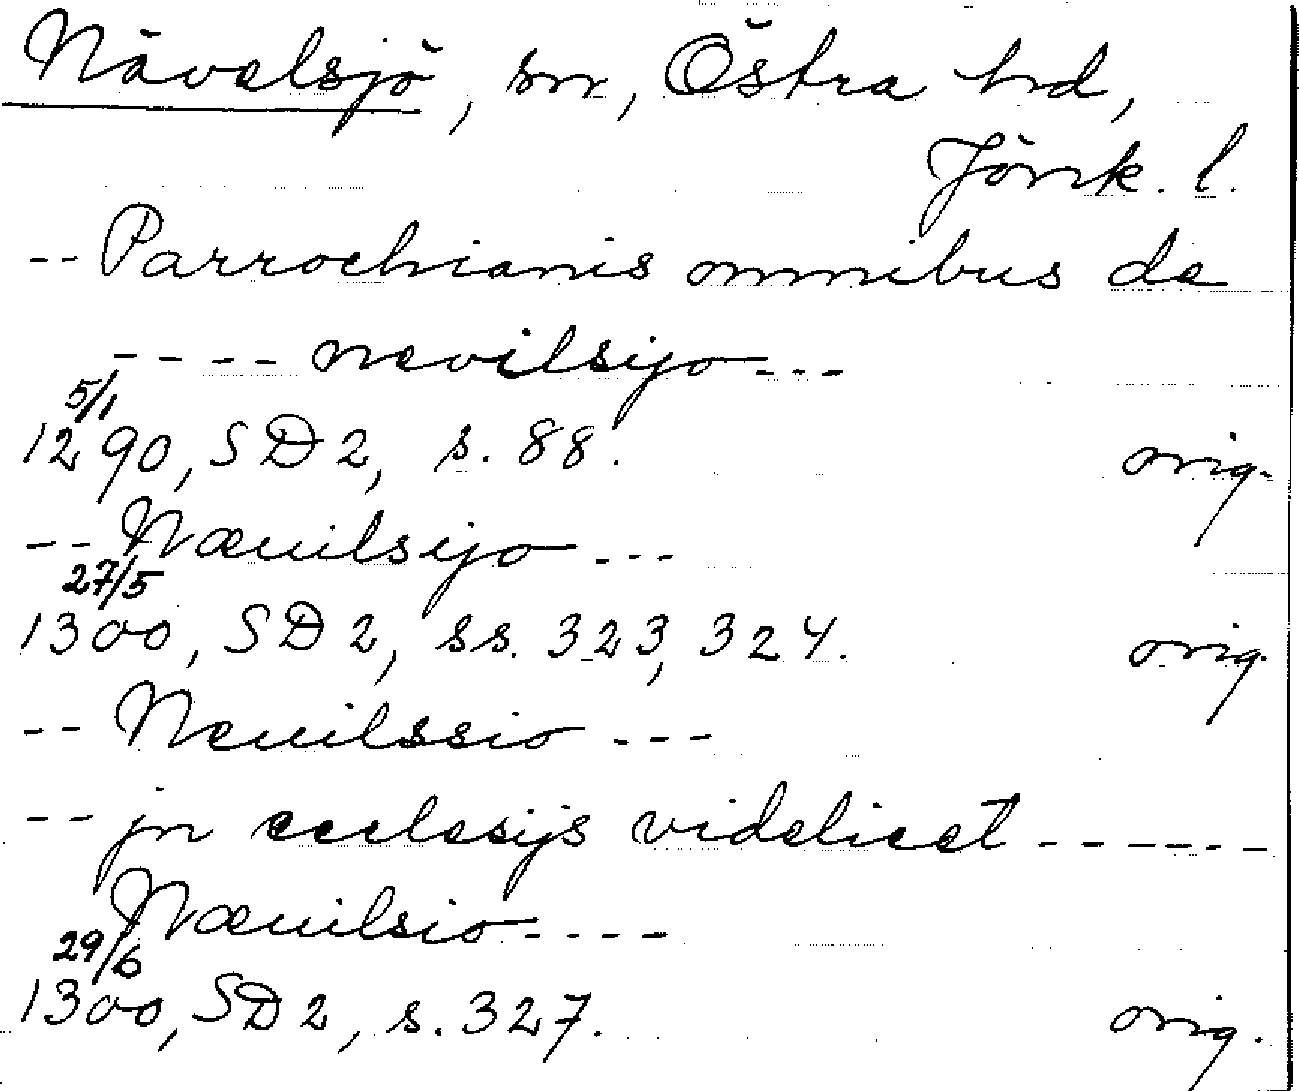 Nävelsjö, sn, Östra hd,
Jönk. l.
-- Parrochianis omnibus de
---- nevilsijo---
5/1
1290, SD 2, s. 88. orig.
-- Næuilsijo---
27/5
1300, SD 2, ss. 323, 324. orig.
-- Neuilssio---
-- jn ecclesijs videlicet ------
Næuilsio----
29/6
1300, SD 2, s. 327. orig.